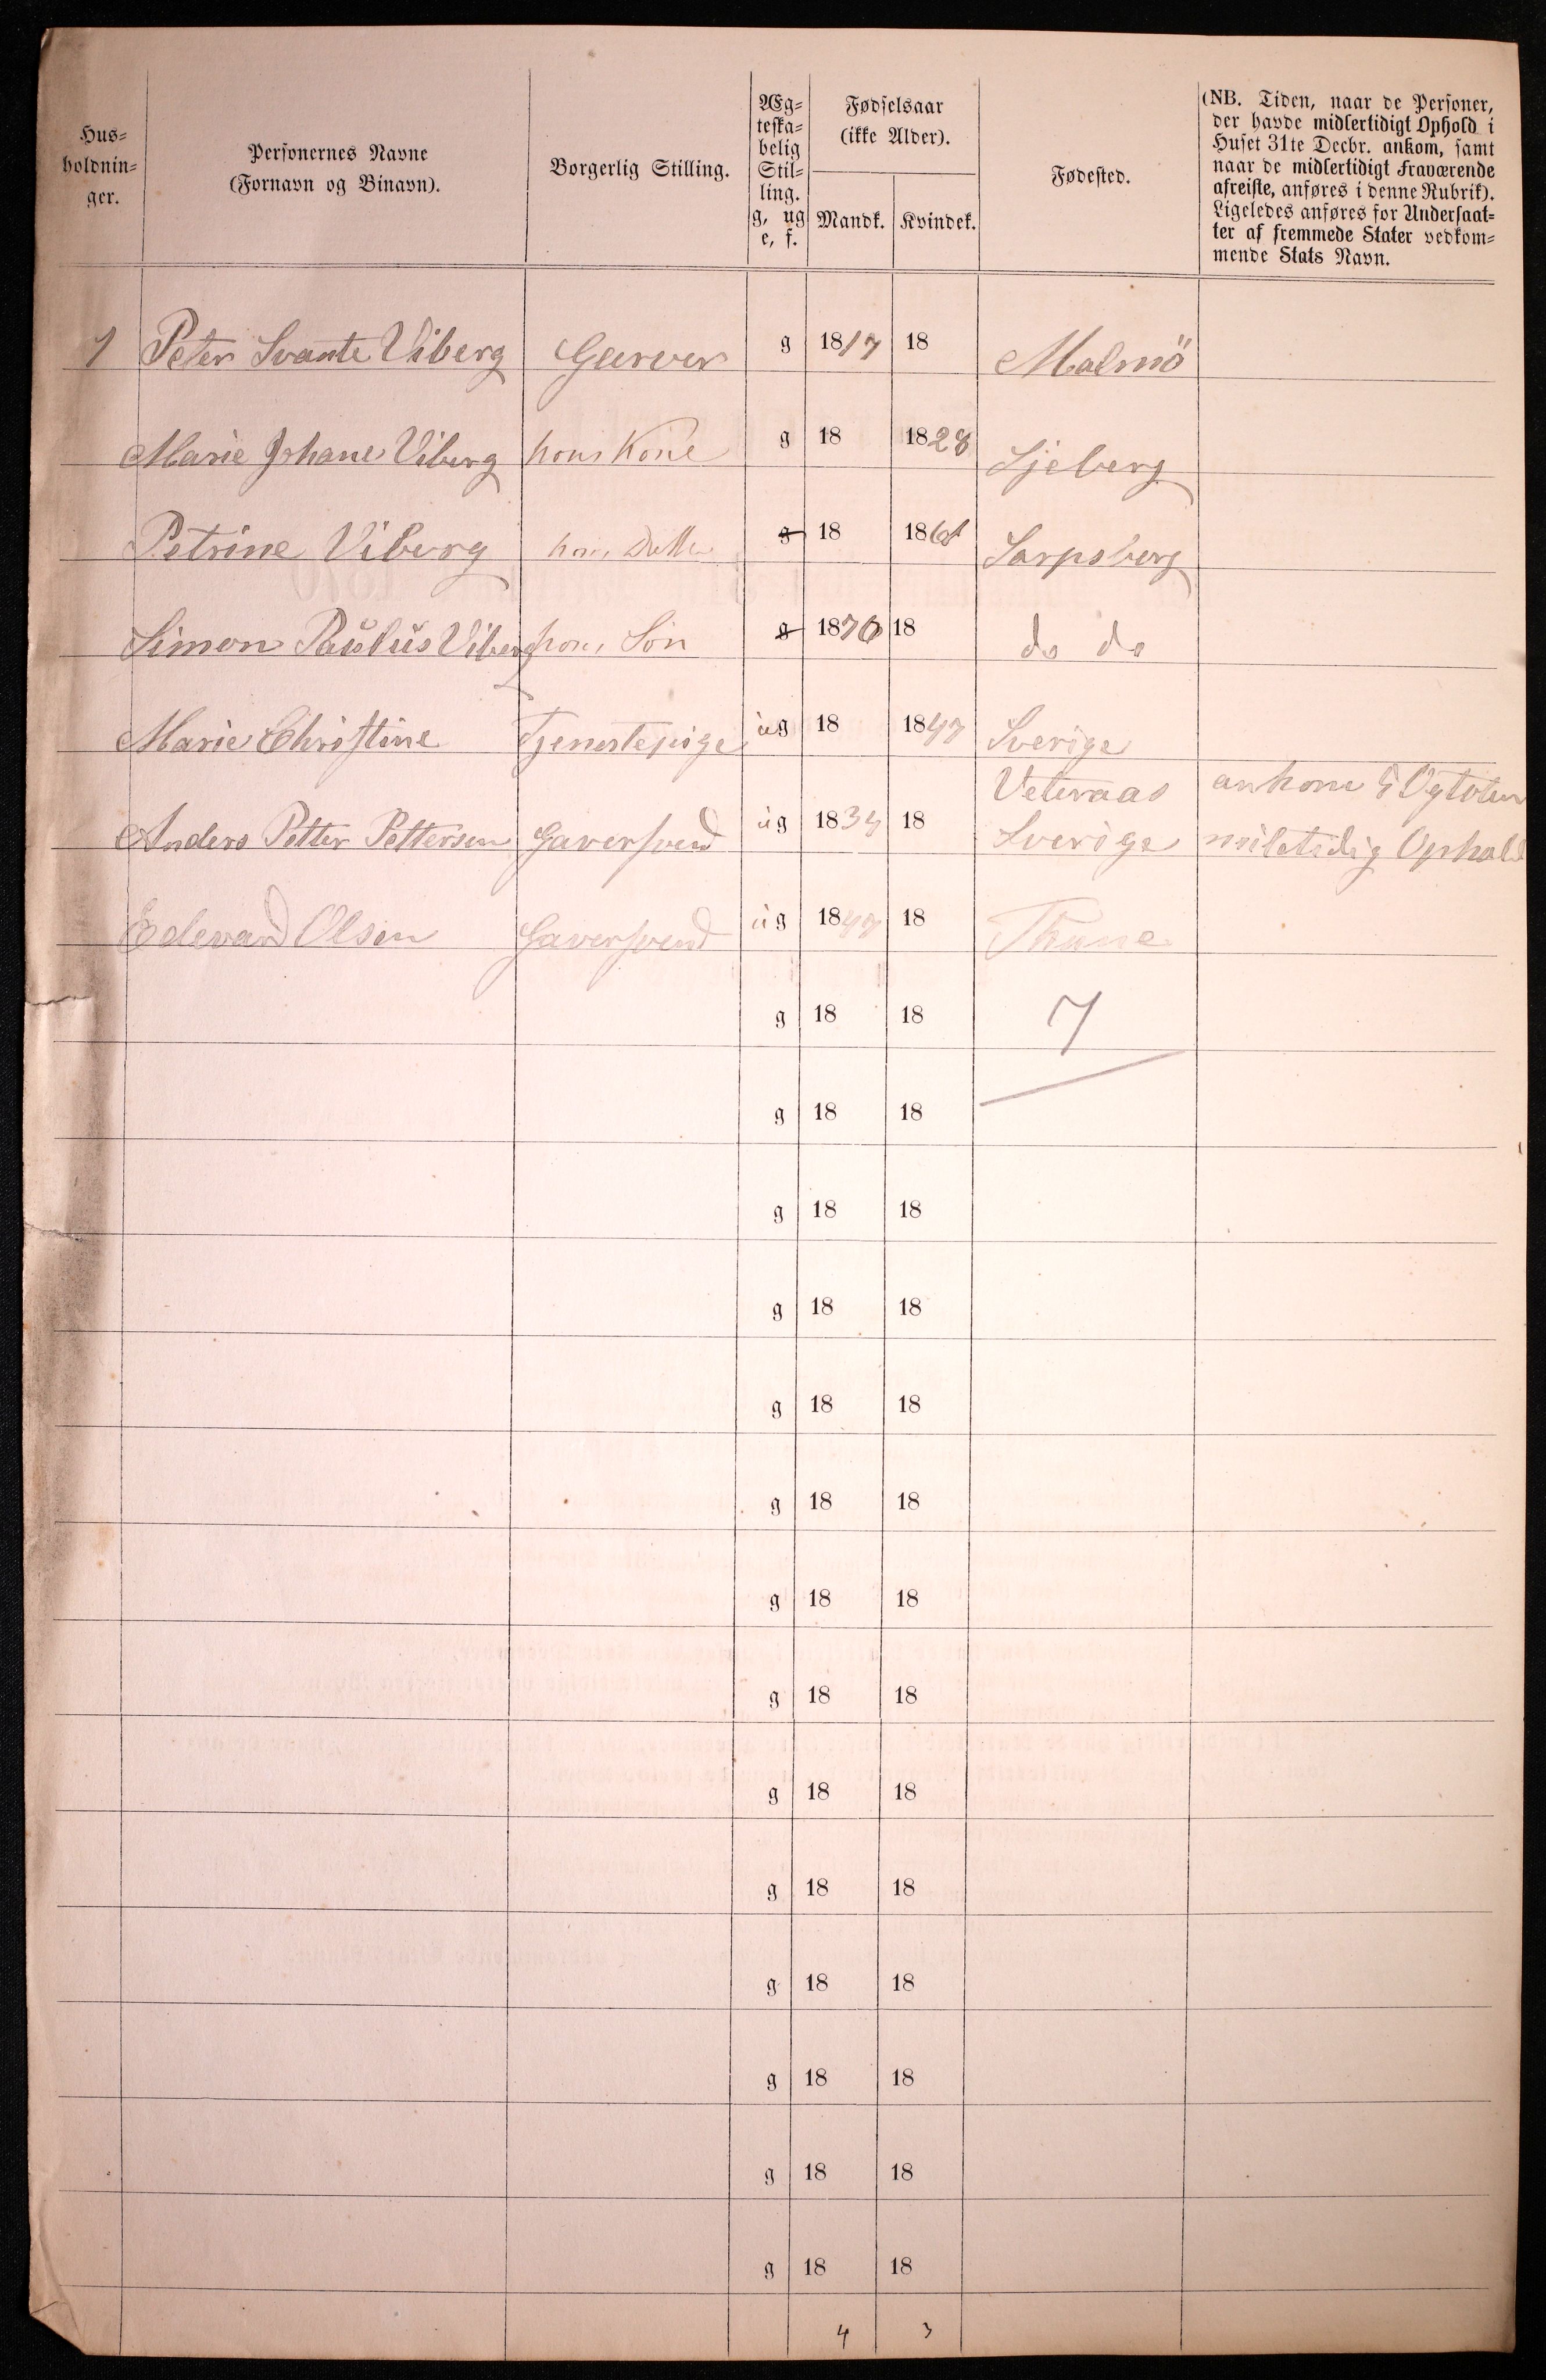 Hus-
holdnin-
ger.
Personernes Navne
(Fornavn og Binavn).
Borgerlig Stilling.
Æg-
teska-
belig
Stil-
ling.
g, ug
e, f.
Fødselsaar
(ikke Alder).
Mandk.
Kvindek.
Fødested.
(NB. Tiden, naar de Personer,
der havde midlertidigt Ophold i
Huset 31te Decbr. ankom, samt
naar de midlertidigt Fraværende
afreiste, anføres i denne Rubrik).
Ligeledes anføres for Undersaat-
ter af fremmede Stater vedkom-
mende Stats Navn.
1 Peter Svante Viberg Garver g 1817 18 Malmö
Marie Johane Viberg hans Kone g 18 1828 Sjeberg
Petrine Viberg hans g 18 186 Sarpsberg
Simon Paulus Viberg hans Sön g 1870 18 do do
Marie Christine Tjenestepige ug 18 1847 Sverige
Veteraas ankom
Anders Petter Pettersen Gaversvend ug 1834 18 Sverige Ophold
Edevard Olsen Gaversvend ug 1847 18 Thune
g 18 18 7
g 18 18
g 18 18
g 18 18
g 18 18
g 18 18
g 18 18
g 18 18
g 18 18
g 18 18
g 18 18
g 18 18
g 18 18
g 18 18
4 3